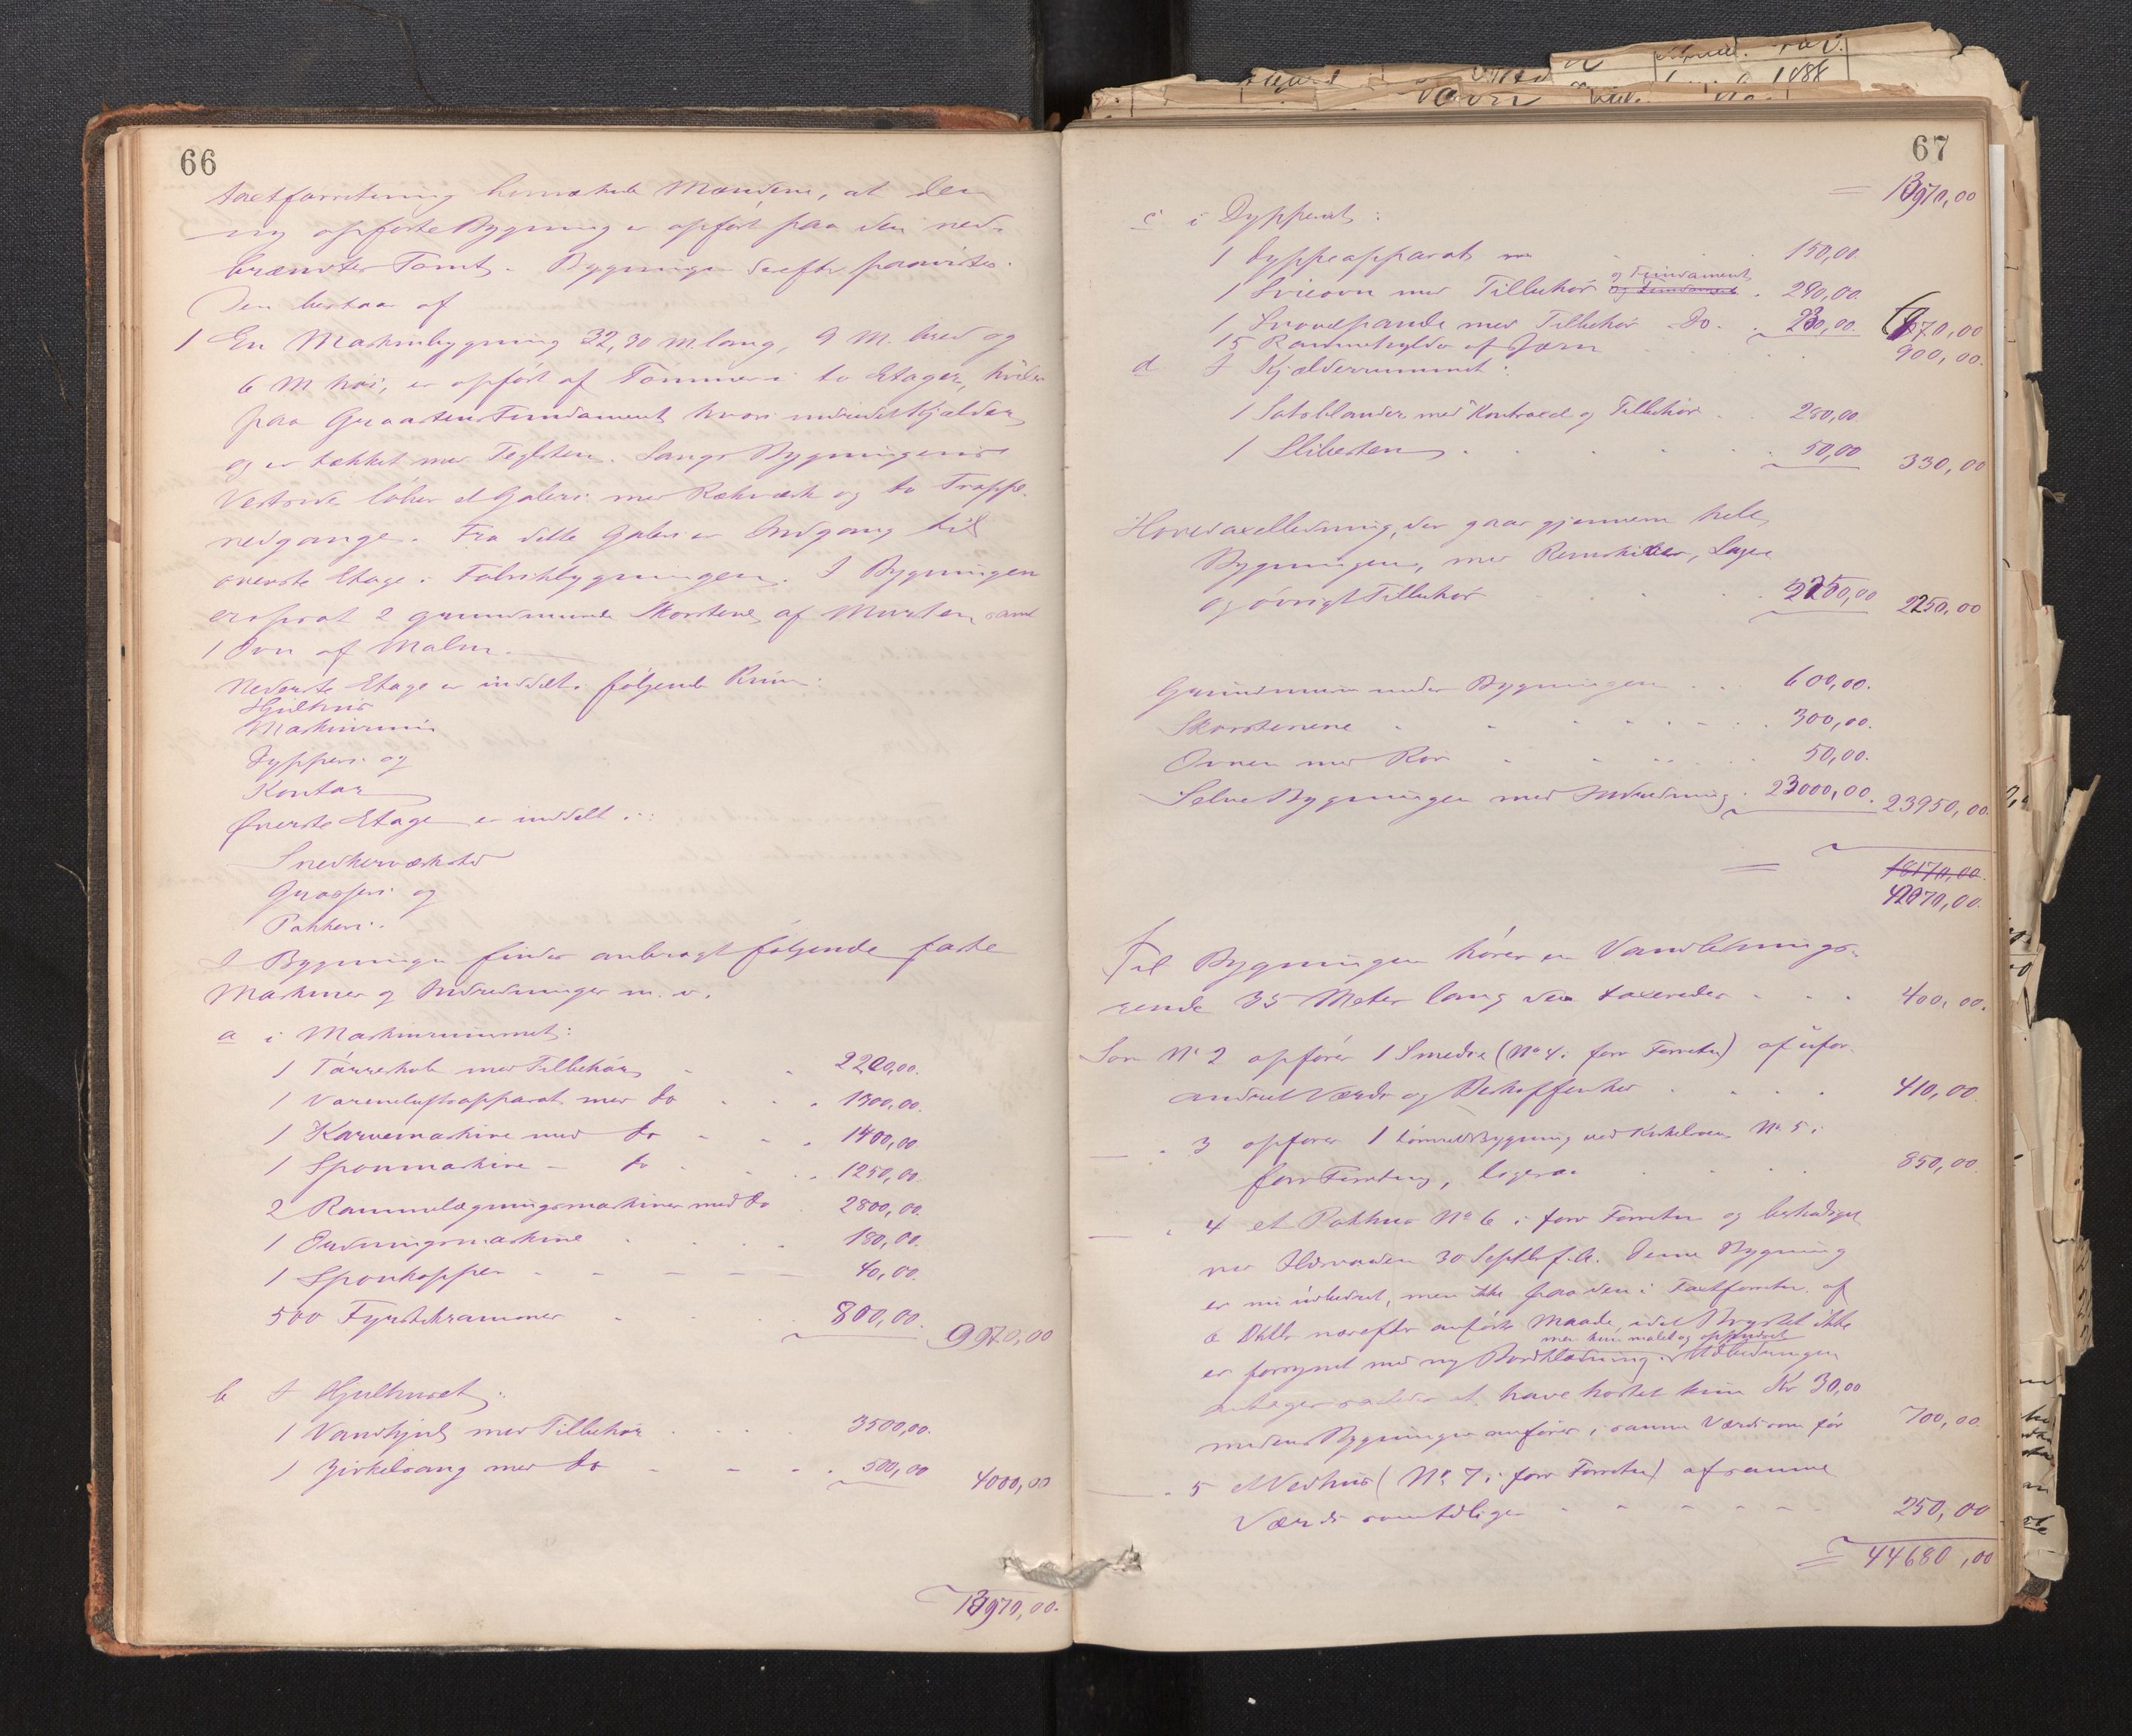 66
taxtforretning bemærkede Mændene, at den
ny opførte Bygning er opført paa den ned-
brændtes Tomt. Bygningen derefter paavistes.
Den bestaar af
1 En Maskinbygning 32,30 M. lang, 9 M. bred og
6 M høi, er opført af Tømmer i to Etager, hviler
paa Graastens Fundament hvori indredet Kjælder
og er tækket med Teglsten. Langs Bygningens
Vestside løber et Galeri med Rækværk og to Trappe-
nedgange. Fra dette Galeri er Indgang til
øverste Etage i Fabrikbygningen. I Bygningen
er opsat 2 grundmurede Skorstene af Mursten samt
1 Ovn af Malm.
Nederste Etage er inddelt i følgende Rum:
Hjulhus
Maskinrum
Dypperi og
Kontor
Øverste Etage er inddelt i:
Snedkerværksted
Pakkeri.
I Bygningen findes anbragt følgende faste
Maskiner og Indredninger m. v.
a i Maskinrummet:
1 Tørrehob med Tilbehør 2200,00.
1 Varmeluftsapparat med do 1300,00.
1 Karvemaskine med do 1400,00
1 Sponmaskine - do 1250,00.
2 Rammelægningsmaskiner med do 2800,00.
1 Ordningsmaskine 180,00.
1 Sponkapper 40,00.
500 Fyrstikrammer 800,00. 9970,00
b I Hjulhuset:
1 Vandhjul med Tilbehør 3500,00.
1 Zirkelsaug med do 500,00 4000,00
13970,00.
67
13970,00
c i Dypperiet:
1 Dyppeapparat 150,00.
og Fundament
1 Svieovn med Tilbehør og Fundament 290,00.
1 Svovelpande med Tilbehør Do. 230,00. 670,00
15 Rammehylder af Jærn 900,00.
d I Kjælderrummet:
1 Satsblander med Tilbehør 280,00
1 Slibesten 50,00 330,00
Hovedaxelledning, der gaar gjennem hele
Bygningen, med Remskiver, Lager
og øvrigt Tilbehør 2250,00 2250,00
Grundmuren under Bygningen 600,00.
Skorstenene 300,00.
Ovnen med Rør 50,00.
Selve Bygningen med Indredning 23000,00. 23950,00.
18170,00.
42070,00.
Til Bygningen hører en Vandlednings-
rende 35 Meter lang der taxeredes 400,00.
Som No 2 opføres 1 Smedie (No 4 i forr Forretn) af ufor-
andret Værdi og Beskaffenhed 410,00
- " 3 opføres 1 Bygning ved No 5 i
forr Forretning, 850,00.
- " 4 et Pakhus No 6 i forr Forretn og beskadiget
ved Ildsvaaden 30 Septbr f. A. Denne Bygning
er nu udbedret, men ikke paa den i Taxtforretn. af
6 Oktbr næstefter anførte Maade, idet ikke
men kun malet og oppudset
er forsynet med ny Bordklædning. Udbedringen
antages saaledes at have kostet kun Kr 30,00
medens Bygningen anføres i samme Værdi som før 700,00.
- " 5 et Vedhus (No 7 i forr Forretn) af samme
Værdi som tidligere 250,00
44680,00